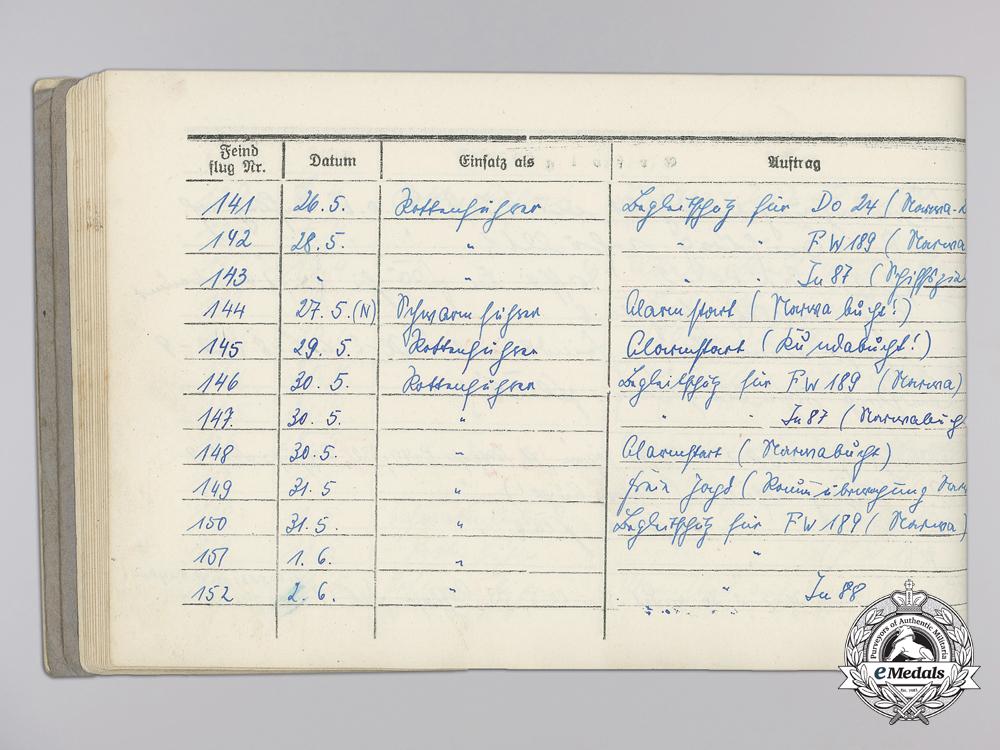 Feind
flug Nr. Datum Einsatz als Auftrag
141 26.5. Rottenführer Begleitschutz für Do 24 (Narwa-
142 28.5. " " " FW 189 (Narwa
143 " " " " Ju 87 (Schiffszie
144 27.5.(N) Schwarmführer Alarmstart (Narwabucht!)
145 29.5. Rottenführer Alarmstart (Kundabucht!)
146 30.5. Rottenführer Begleitschutz für FW 189 (Narwa)
147. 30.5. " " " Ju 87 (Narwabuch
148 30.5. " Alarmstart (Narwabucht)
149 31.5 " freie Jagd (Raumüberwachung Nar
150 31.5. " Begleitschutz für FW 189 (Narwa)
151 1.6. " "
152 2.6. " " Ju 88
Purveyors of Authentic Militaria
eMedals
Est. 1985